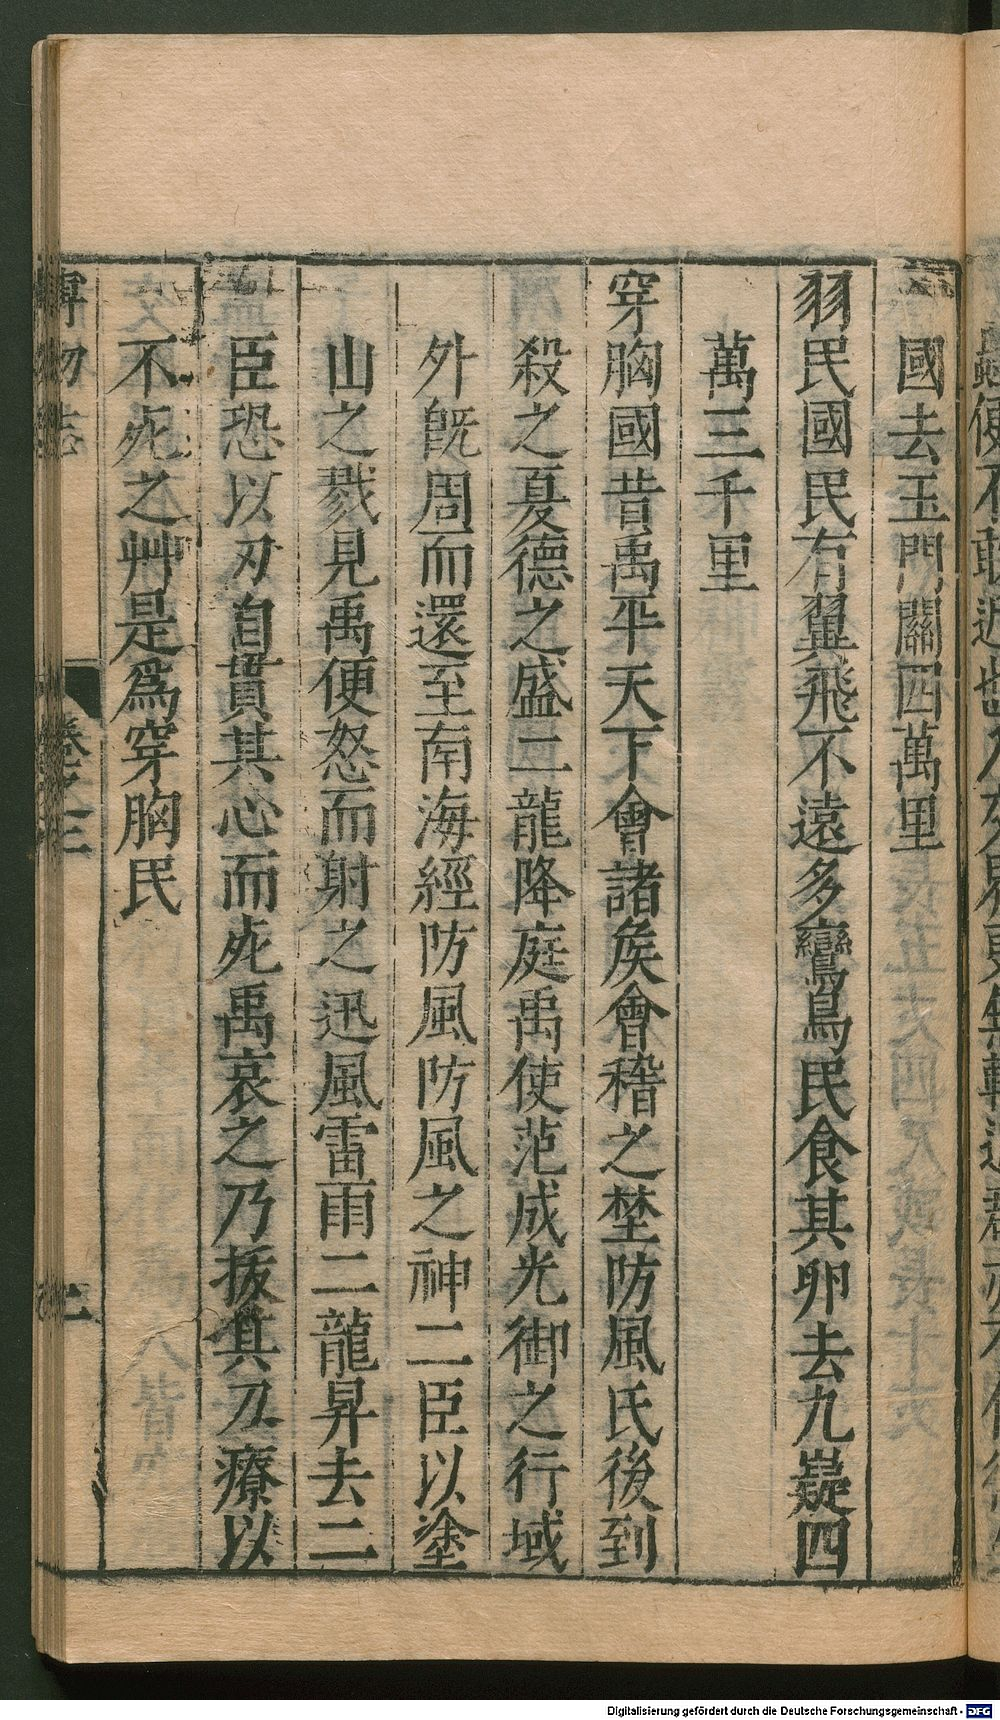 國去玉門關四萬里
羽民國民有翼飛不遠多鸞鳥民食其卵去九嶷四
萬三千里
穿胸國昔禹平天下會諸矦會稽之埜防風氏後到
殺之夏德之盛二龍降庭禹使范成光御之行域
外旣周而還至南海經防風防風之神二臣以塗
山之戮見禹便怒而射之迅風雷雨二龍昇去二
臣恐以刃自貫其心而死禹哀之乃拔其刀療以
不死之艸是爲穿胸民
博物志 卷之二 二
Digitalisierung gefördert durch die Deutsche Forschungsgemeinschaft - DFG